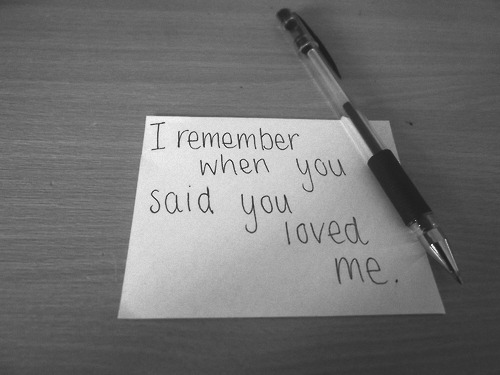 I remember
when you
said you
loved
me.